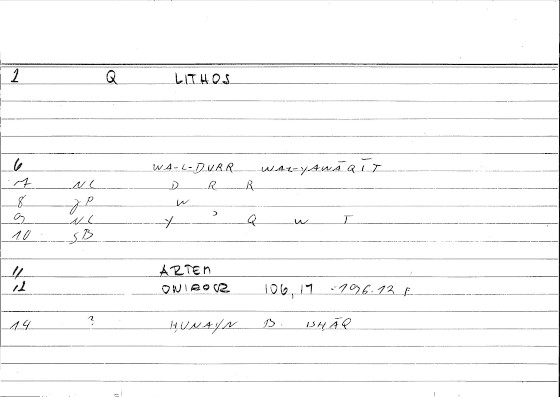 1 Q LITHOS
6 WA-L-DURR WAL-YAWĀQĪT
7 NC D R R
8 JP W
9 NC Y ʾ Q W T
10 SB
11 ARTEM
12 ONIROCR 106,17 -196.13 F
14 ? HUNAYN B. ISHĀQ